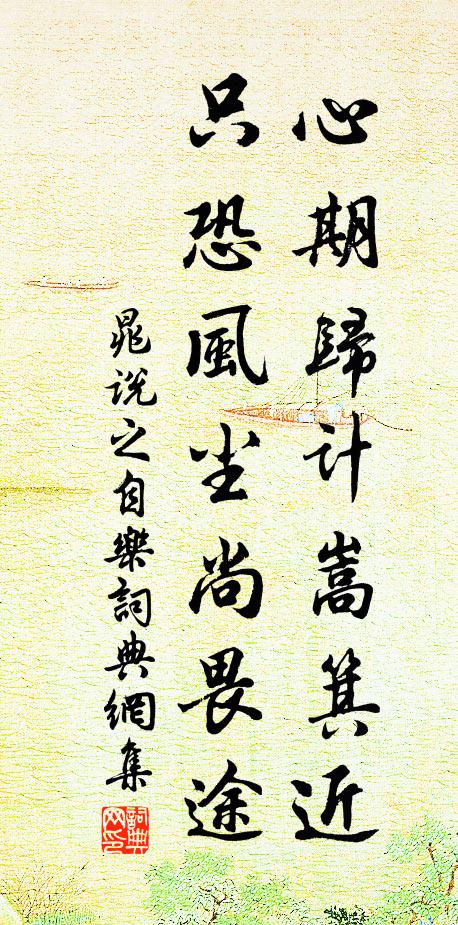 心期歸計嵩箕近
只恐風尘尚畏途
晁說之自樂詞典網集
詞典网印